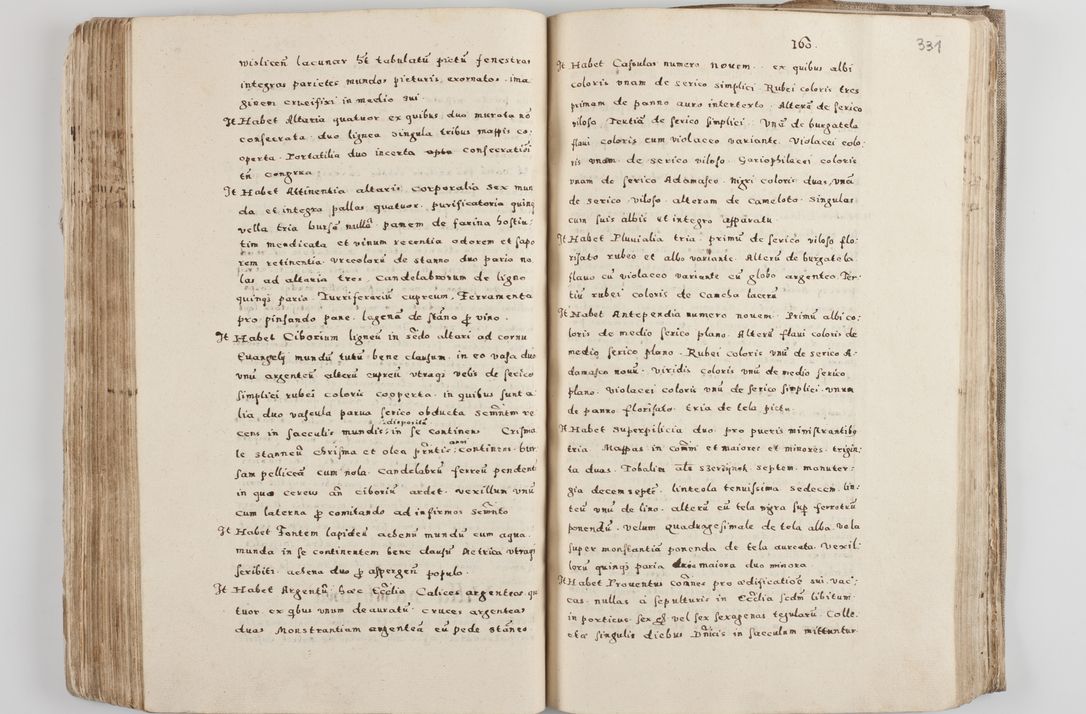 wislicen̄ lacunar st tabulatū pictū fenestras
integras parietes mundos picturis exornatos . ima
ginem crucifixi in medio sui .
It Habet Altaria quatuor ex quibus duo murata nō
consecrata . duo lignea singula tribus mappis co:
operta . Portatilia duo incerta consecratiōi
tn̄ congrua
It Habet Attinentia altaris corporalia sex mun
da et integra pallas quatuor . purificatoria quinq
vella tria bursā nullā panem de farina hostiu
tim mendicata et vinum recentia odorem et sapo
rem retinentia . vrceolorū de stanno duo paria no
las ad altaria tres . Candelabrorum de ligno
quinq paria . Turriferariū cupreum . Ferramenta
pro pinsando pane . lagenā de stāno p vino .
It Habet Ciborium ligneū in altari ad cornu
Euangelij mundū tutū bene clausum . in eo vasa duo
vnū argenteū alterū cupreū vtraq velis de serico
simplici rubei coloris cooperta . in quibus sunt a
lia duo vascula parua serico obducta re
cens in sacculis mundis disposita in se continens Crisma
le stanneū chrisma et olea continens . bur
sam pelliceā cum nola . Candelabrū ferreū pendens
in quo cereus an̄ ciboriū ardet . vexillum vnū
cum laterna p comitando ad infirmos
It Habet Fontem lapideū ahenū mundū cum aqua
munda in se continentem bene clausū Metrica vtraq
scribiti . ahena duo p aspergen̄ populo .
It Habet Argentū hoc Ecclīa Calices argenteos qu
tuor ex qbus vnum deauratū . cruces argenteas
duas Monstrantiam argenteā cū pede stāneo
160.
331
It Habet Casulas numero novem . ex quibus albi
coloris vnam de serico simplici . Rubei coloris tres
primam de panno auro intertexto . Alterā de serico
viloso . Tertiā de serico simplici . Vnā de burgatela
flaui coloris cum violaceo variante . Violacei colo:
ris vnam de serico viloso . Gariophilacei coloris
vnam de serico Adamasco . nigri coloris duas . vnā
de serico viloso . alteram de cameloto . singulas
cum suis albis et integro apparatu .
It Habet Pluuialia tria . primū de serico viloso flo:
risato rubeo et albo variante . Alterū de burgatela
flauo cū violaceo variante cū globo argenteo . Ter
tiū rubei coloris de camcha lacerū
It Habet Antependia numero nouem . Primū albi co:
loris de medio serico plano . Alterū flaui coloris de
medio serico plano . Rubei coloris vnū de serico A:
damasco nouū . viridis coloris vnū de medio serico
plano . violacei coloris vnū de serico simplici . vnum
de panno florisato . tria de tela picta .
It Habet Superpilicia duo pro pueris ministrantibo
tria . Mappas in com̄i et maiores et minores . trigin:
ta duas . Tobalim als septem . manuter:
gia decem septē . linteola tenuissima . sedecem . lin:
teū vnū de lino . alterū cū tela nigra sup ferotrū
ponendū . velum quadragesimale de tela alba . vola
super monstrantiā ponenda de tela aureata . Vexil:
lorū quinq paria maiora duo minora
It Habet Prouentus com̄nes pro ædificatiōe sui . vac:
cas nullas a sepulturis in Ecclīa scdm̄ libitum
in porticu sex vel sex sexagenas tegularū . Colle:
cta singulis diebus Dn̄icis in sacculum mittuntur